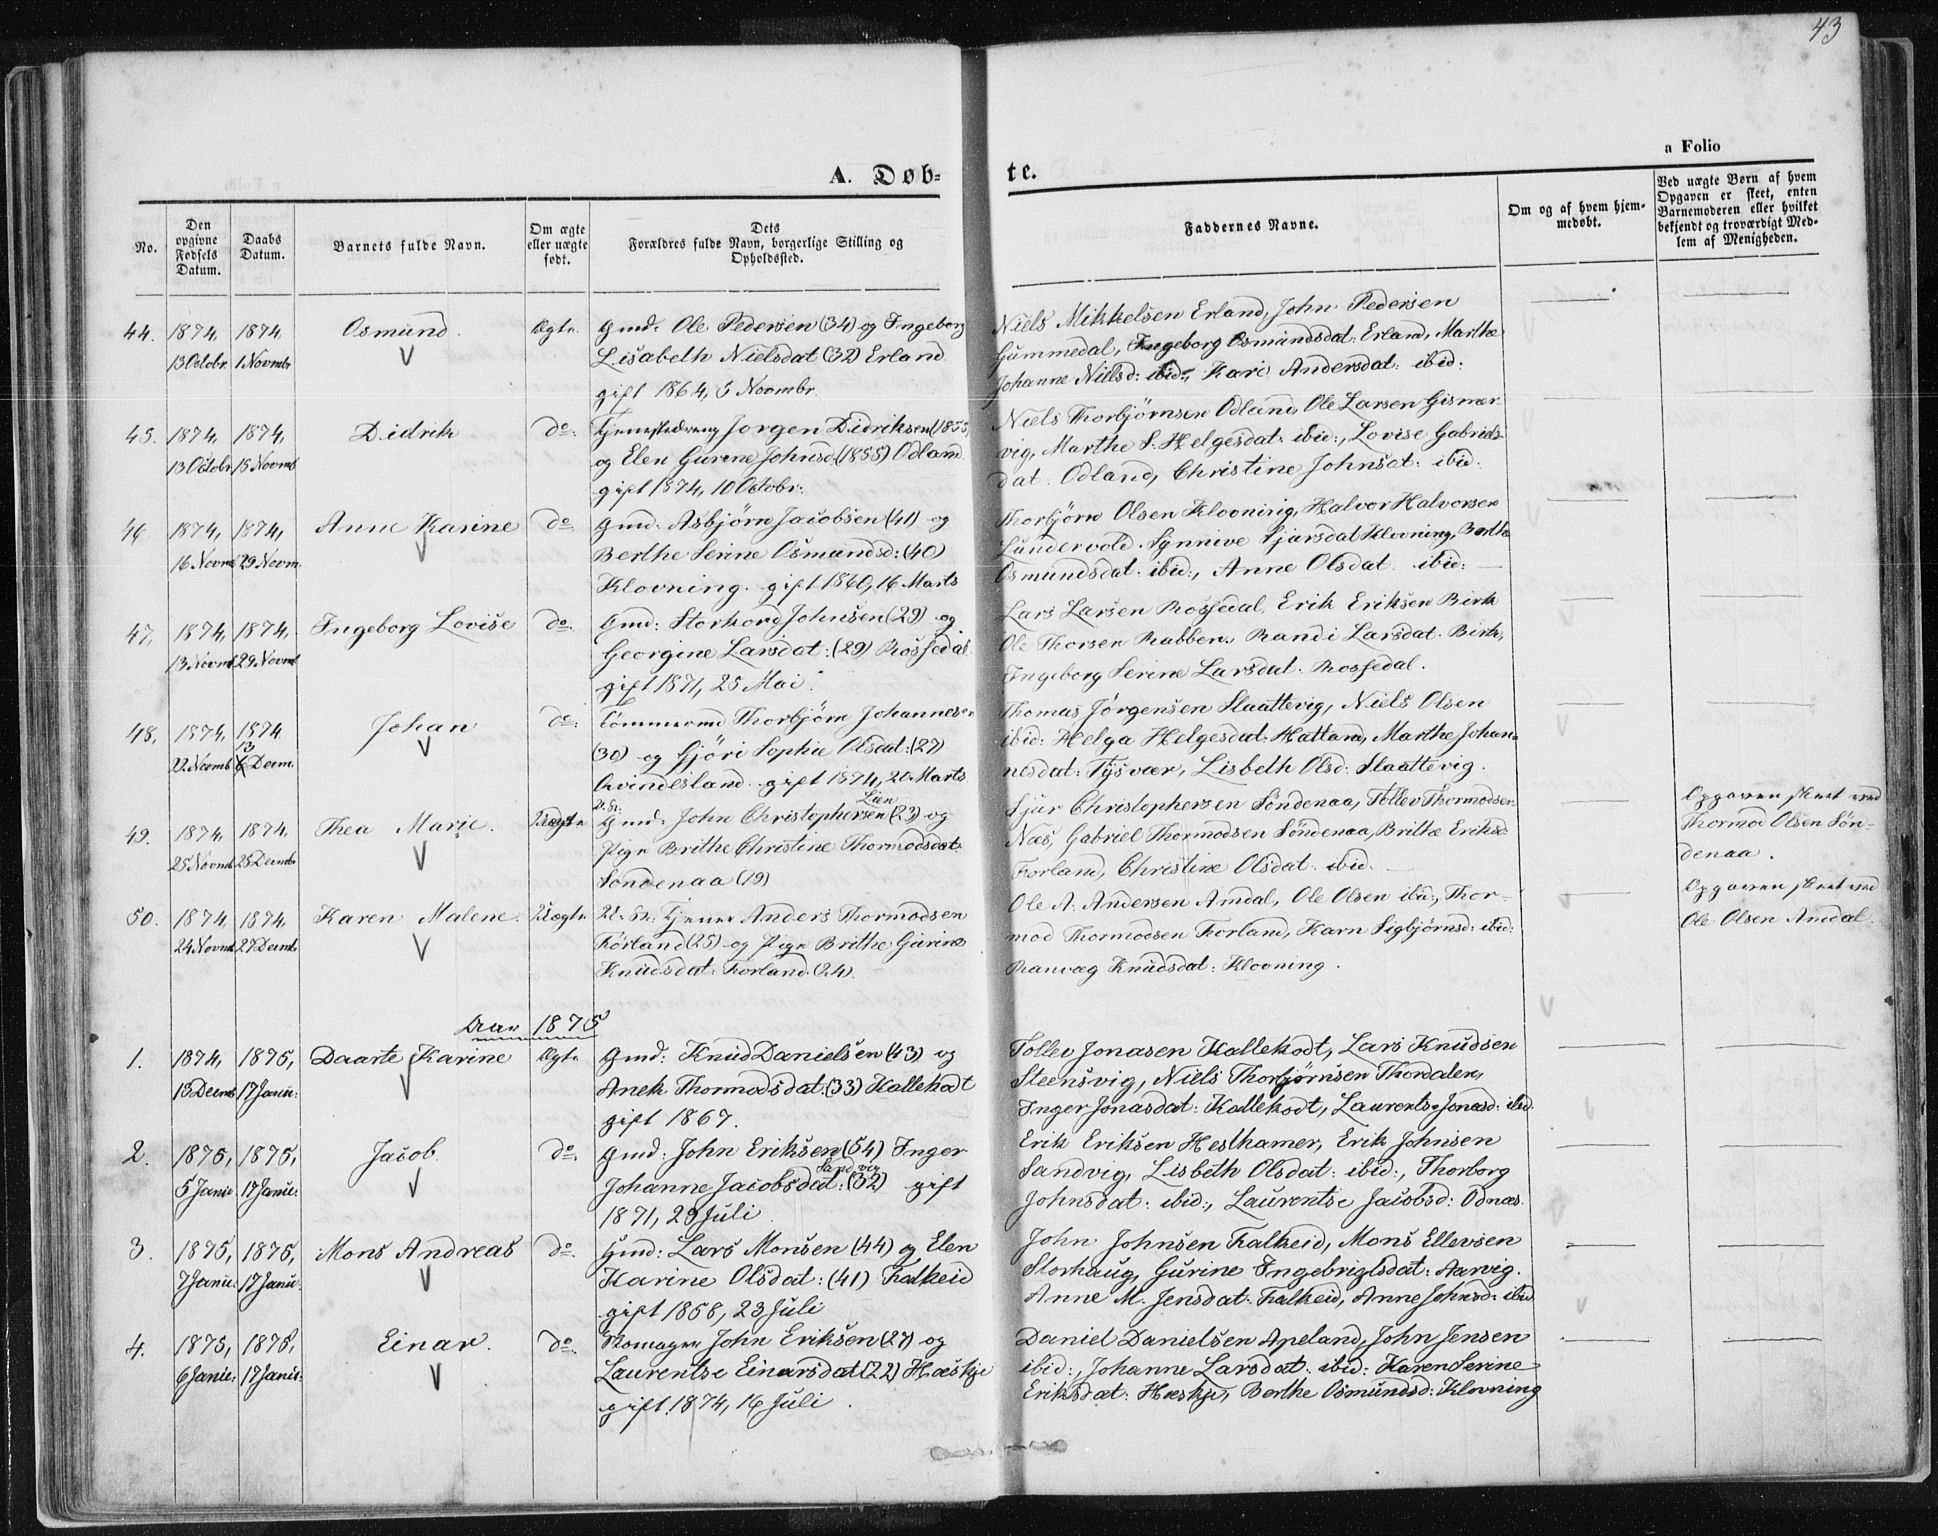 43
a Folio
A. Døb-
te.
No.
Den opgivne Fødsels Datum.
Daabs Datum.
Barnets fulde Navn.
Om ægte eller uægte født.
Dets Forældres fulde Navn, borgerlige Stilling og Opholdssted.
Faddernes Navne.
Om og af hvem hjem-
medøbt.
Ved uægte Børn af hvem
Opgaven er skeet, enten
Barnemoderen eller hvilket
bekjendt og troværdigt Med-
lem af Menigheden.
44. 1874, 13 Octobr. 1874, 1 Novmbr Osmund. Ægte.
Gmd: Ole Pedersen (34) og Ingeborg
Lisabeth Nielsdat (32) Erland
gift 1864, 3 Novmbr.
Niels Mikkelsen Erland, John Pedersen
Gummedal, Ingeborg Osmundsdat: Erland, Marthe
Johanne Nielsd: ibid:, Kari Andersdat: ibid:
45. 1874, 13 Octobr 1874, 15 Novmb Didrik do.
Jørgen Didriksen (1855)
og Elen Gurine Johnsd (1855) Odland
gift 1874, 10 Octobr:
Niels Thorbjørnsen Odland, Ole Larsen Gismer-
vig, Marthe S. Helgesdat: ibid:, Lovise Gabriels-
dat. Odland, Christine Johnsdt: ibid:
46 1874, 16 Novmb 1874, 29 Novm. Anne Karine do.
Gmd: Asbjørn Jacobsen (41) og
Berthe Serine Osmundsd: (40)
Klovning. gift 1860, 16 Marts
Thorbjørn Olsen Klovning, Halvor Halvorsen
Lundervold. Synnive Sjursdat Klovning, Berthe
Osmundsdat: ibid:, Anne Olsdat: ibid:
47, 1874, 13 Novmb 1874, 29 Novmb Ingeborg Lovise do.
Gmd: Storkord Johnsen (29) og
Georgine Larsdat: (29) Rossedal
gift 1871, 25 Mai.
Lars Larsen Rossedal, Erik Eriksen Birk
Ole Thorsen Rabben, Randi Larsdat. Birk,
Ingeborg Serine Larsdat. Rossedal.
48, 1874, 22. Novmb 1874 13 6 Decm. Johan do:
Tømmermd Thorbjørn Johannesen
(30) og Gjøri Sophie Olsdat: (27)
Qvindesland. gift 1874, 20 Marts
Thomas Jørgensen Slaattevig, Niels Olsen
ibid: Helga Helgesdat: Hatland, Marthe Johan-
nesdat: Tysvær, Lisbeth Olsd: Slaattevig.
49. 1874, 25 Novmb 1874, 25 Decmb Thea Marie. Uægte
Lien
John Christophersen (23) og
Pige Brithe Christine Thormodsdat:
Søndenaa (19)
Sjur Christophersen Søndenaa, Tollev Thormodsen
Næs, Gabriel Thormodsen Søndenaa, Brithe Eriksd:
Forland, Christine Olsdat. ibid.
Opgaven skeet ved
Thormod Olsen Søn-
denaa.
50. 1874, 24 Novmb 1874, 27 Decmb Karen Malene. Uægte
Tjener Anders Thormodsen
Førland (25) og Pige Brithe Gurine
Knudsdat: Forland. (24).
Ole A. Andersen Amdal, Ole Olsen ibid:, Thor-
mod Thormodsen Forland, Karn Sigbjørnsd: ibid:
Ranvæg Knudsdat: Klovning.
Opgaven skeet ved
Ole Olsen Amdal.
Aar 1875
1. 1874, 13 Decmb 1875, 17 Janu: Daarte Karine Ægte
Gmd: Knud Danielsen (43) og
Anek Thormodsdat: (33) Kallekodt
gift 1867.
Tollev Jonasen Kallekodt, Lars Knudsen
Steensvig, Niels Thorbjørnsen Thordalen,
Inger Jonasdat: Kallekodt, Laurentse Jonasd: ibid.
2. 1875, 5 Janu: 1875, 17 Janu: Jacob. do.
Gmd: John Eriksen (54) Inger
Sandvig
Johanne Jacobsdat: (32) gift
1871, 29 Juli
Erik Eriksen Hesthamer, Erik Johnsen
Sandvig, Lisbeth Olsdat: ibid:, Thorborg
Johnsdat: ibid:, Laurentse Jacobsd: Odnæs.
3. 1875, 7 Janu: 1875, 17 Janu: Mons Andreas do.
Gmd: Lars Monsen (44) og Elen
Karine Olsdat: (41) Falkeid
gift 1858, 23 Juli
John Johnsen Falkeid, Mons Ellevsen
Storhaug, Gurine Ingebrigtsdat: Aarvig.
Anne M. Jensdat: Falkeid, Anne Johnsd: ibid
4. 1875, 6 Janu: 1875, 17 Janu: Einar. do.
Skomager John Eriksen (27) og
Laurentse Einarsdat (22) Hæskje
gift 1874, 16 Juli.
Daniel Danielsen Apeland, John Jensen
ibid:, Johanne Larsdat: ibid: Karen Serine
Eriksdat: Hæskje, Berthe Osmundsd: Klovning